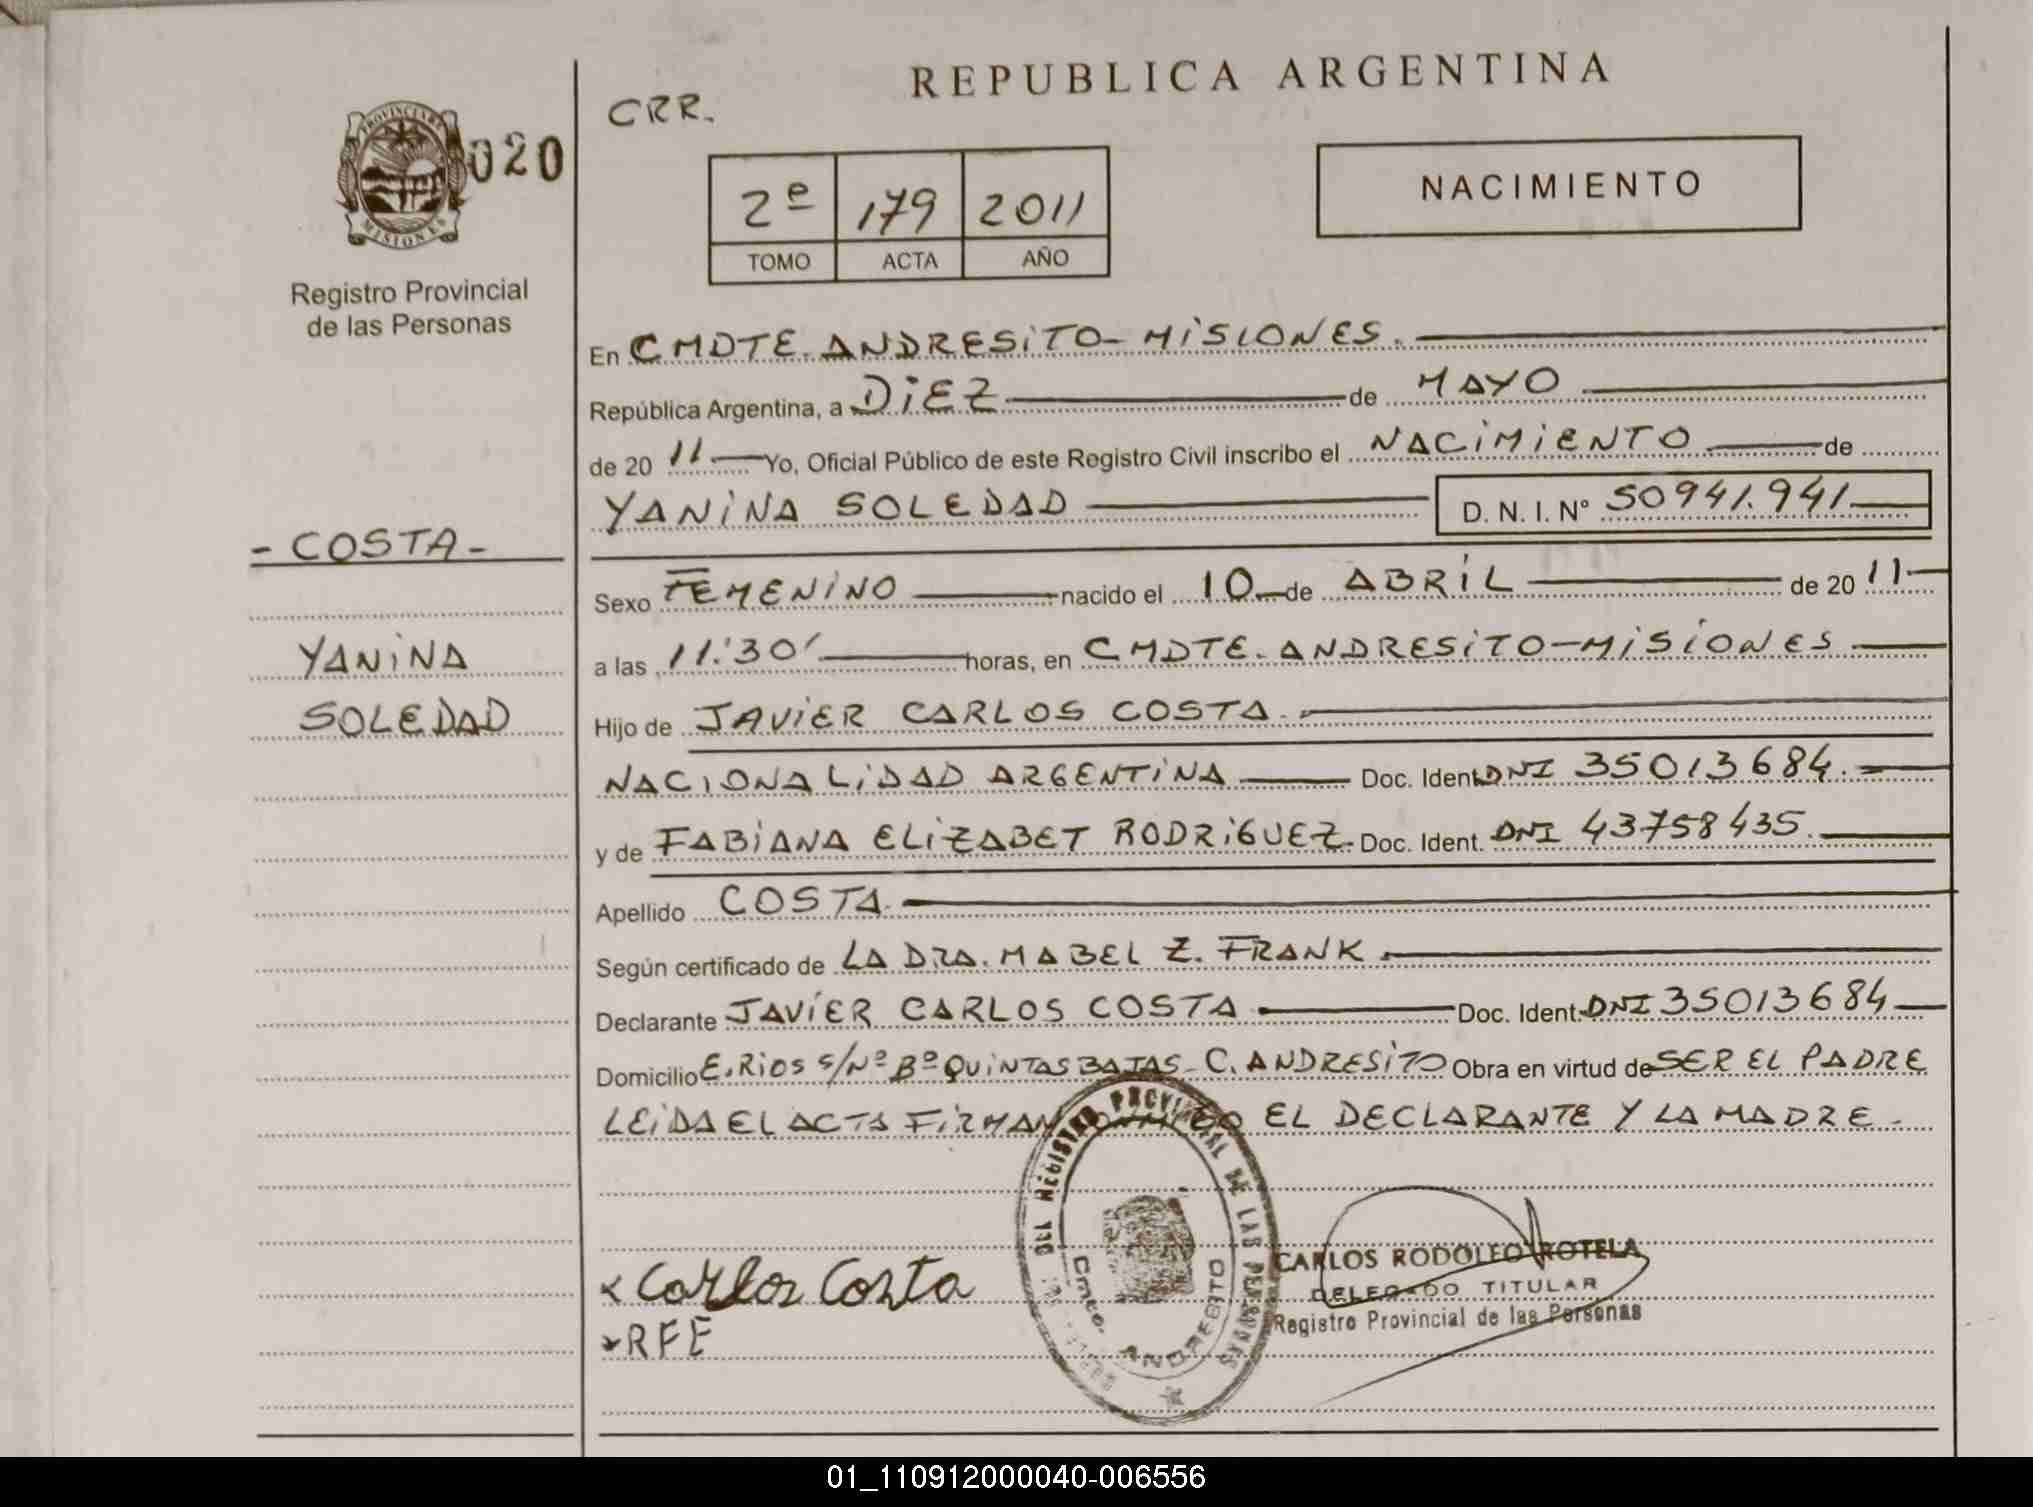 REPUBLICA ARGENTINA
CRR.
PROVINCIA DE
MISIONES
020
Registro Provincial
de las Personas
2º 179 2011
TOMO ACTA AÑO
NACIMIENTO
En CMDTE. ANDRESITO - MISIONES.
República Argentina, a DIEZ de MAYO
de 20 11 Yo, Oficial Público de este Registro Civil inscribo el NACIMIENTO de
YANINA SOLEDAD D. N. I. Nº 50941.941
- COSTA -
YANINA
SOLEDAD
Sexo FEMENINO nacido el 10 de ABRIL de 20 11
a las 11:30' horas, en CMDTE. ANDRESITO - MISIONES
Hijo de JAVIER CARLOS COSTA.
NACIONALIDAD ARGENTINA Doc. Ident. DNI 35013684.
y de FABIANA ELIZABET RODRIGUEZ. Doc. Ident. DNI 43758435.
Apellido COSTA.
Según certificado de LA DRA. MABEL Z. FRANK.
Declarante JAVIER CARLOS COSTA Doc. Ident. DNI 35013684
Domicilio E. RIOS S/Nº Bº QUINTAS BAJAS - C. ANDRESITO Obra en virtud de SER EL PADRE
LEIDA EL ACTA FIRMAN EL DECLARANTE Y LA MADRE.
REGISTRO PROVINCIAL DE LAS PERSONAS
Cmte. ANDRESITO
x Carlos Costa
RFE
CARLOS RODOLFO ROTELA
DELEGADO TITULAR
Registro Provincial de las Personas
01_110912000040-006556